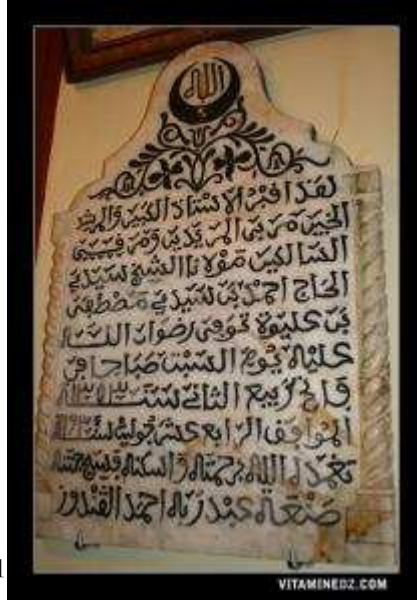 الله
هذا قبر الاستاذ الكبير والمرشد
الخبير مربي المريدين
السالكين مولانا الشيخ سيدي
الحاج احمد بن سيدي مصطفى
بن عليوة توفي رضوان الله
عليه يوم السبت صباحا في
فاتح ربيع الثاني سنة
الموافق الرابع عشر جولية سنة
تغمده الله برحمته واسكنه فسيح جنته
صنعة عبد ربه احمد القندوز
VITAMINEDZ.COM